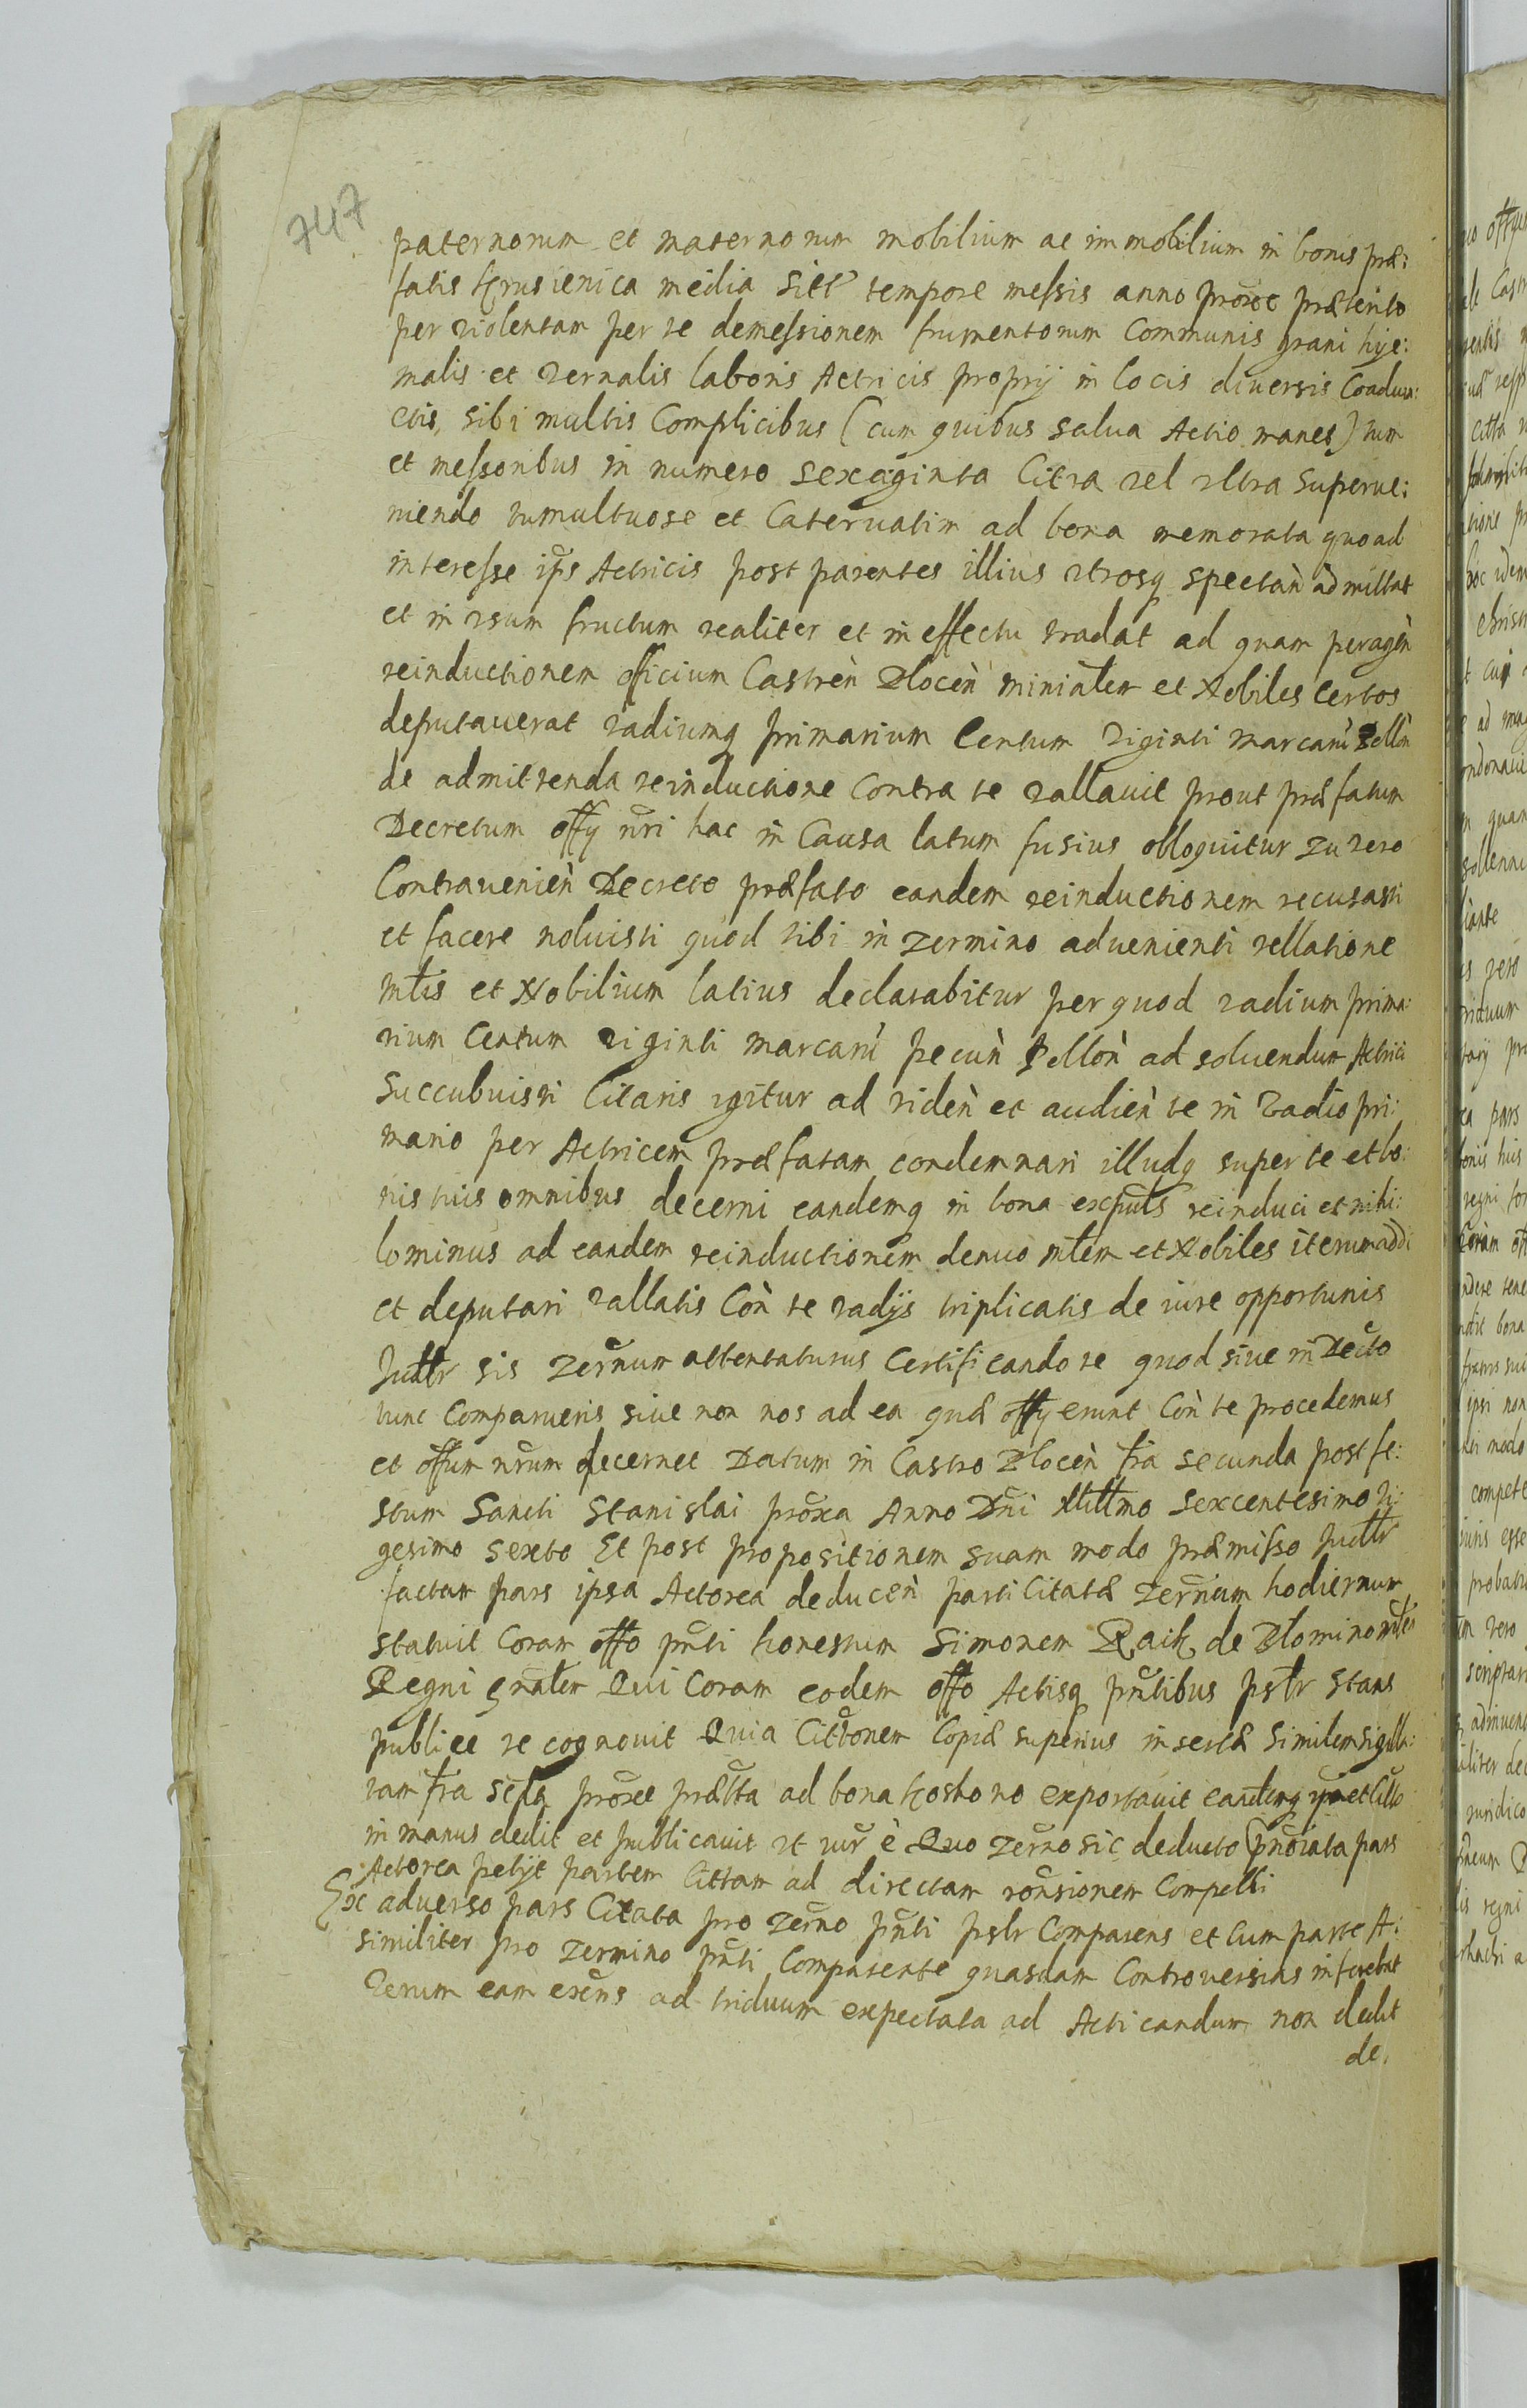 747
paternorum et maternorum mobilium ac immobilium in bonis præ:
fatis Krusienica media sitt tempore messis anno proxe præterito
per violentam per te demessionem frumentorum Communis grani hije:
malis et vernalis laboris Actricis proprij in locis diuersis Coadun:
ctis, sibi multis Complicibus (cum quibus salua Actio manes) tum
et messoribus in numero sexaginta Citra vel vltra Superue:
niendo tumultuose et Cateruatim ad bona memorata quoad
interesse ips Actricis post parentes illius vtrosq spectan admittat
et in vsum fructum realiter et in effectu tradat ad quam peragen
reinductionem officium Castren Plocen miniatem et Nobiles Certos
deputauerat vadiumq primarium Centum viginti marcaru Pollon
de admittenda reinductione Contra te vallauit prout præfatum
Decretum offy nri hac in Causa latum fusius obloquitur Tu vero
Contrauenien Decreto præfato eandem reinductionem recusasti
et facere noluisti quod tibi in Termino aduenienti rellatione
mtis et Nobilium latius declarabitur per quod vadium prima:
rium Centum viginti marcaru pecun Pollon ad soluendum Actrici
Succubuisti Citaris igitur ad viden et audien te in Vadio pri:
mario per Actricem præfatam condemnari illudq super te et bo:
nis tuis omnibus decerni eandemq in bona expnts reinduci et nihi:
lominus ad eandem reinductionem denuo mtem et Nobiles iterum addi
et deputari vallatis Con te vadijs triplicatis de iure opportunis
Judtr sis Ternum attentaturus Certificando te quod siue in Decto
tunc Comparueris siue non nos ad ea quæ offy erunt Con te procedemus
et offum nrum decernet Datum in Castro Plocen fra secunda post fe:
stum Sancti Stanislai proxa Anno Dni Millmo Sexcentesimo Vi:
gesimo sexto Et post propositionem suam modo præmisso Judtr
factam pars ipsa Actorea deducen parti Citatæ Ternum hodiernum
statuit Coram offo pnti honestum Simonem Raik de Plomino mtem
Regni gnalem Qui Coram eodem offo Actisq pntibus pslr stans
publice recognouit Quia Cittonem Copiæ superius insertæ Similem sigilla:
tam fra sexta proxe prætta ad bona Koshono exportauit eandemq
in manus dedit et publicauit vt iur e Quo Terno sic deducto pnoiata pars
Actorea petijt partem Cittam ad directam ronsionem Compelli
Ex aduerso pars Citata pro Terno pnti pslr Comparens et Cum parte A:
similiter pro Termino pnti Comparente quasdam Controuersias inferebat
Verum eam exens ad triduum expectata ad Acticandum non dedit
de.